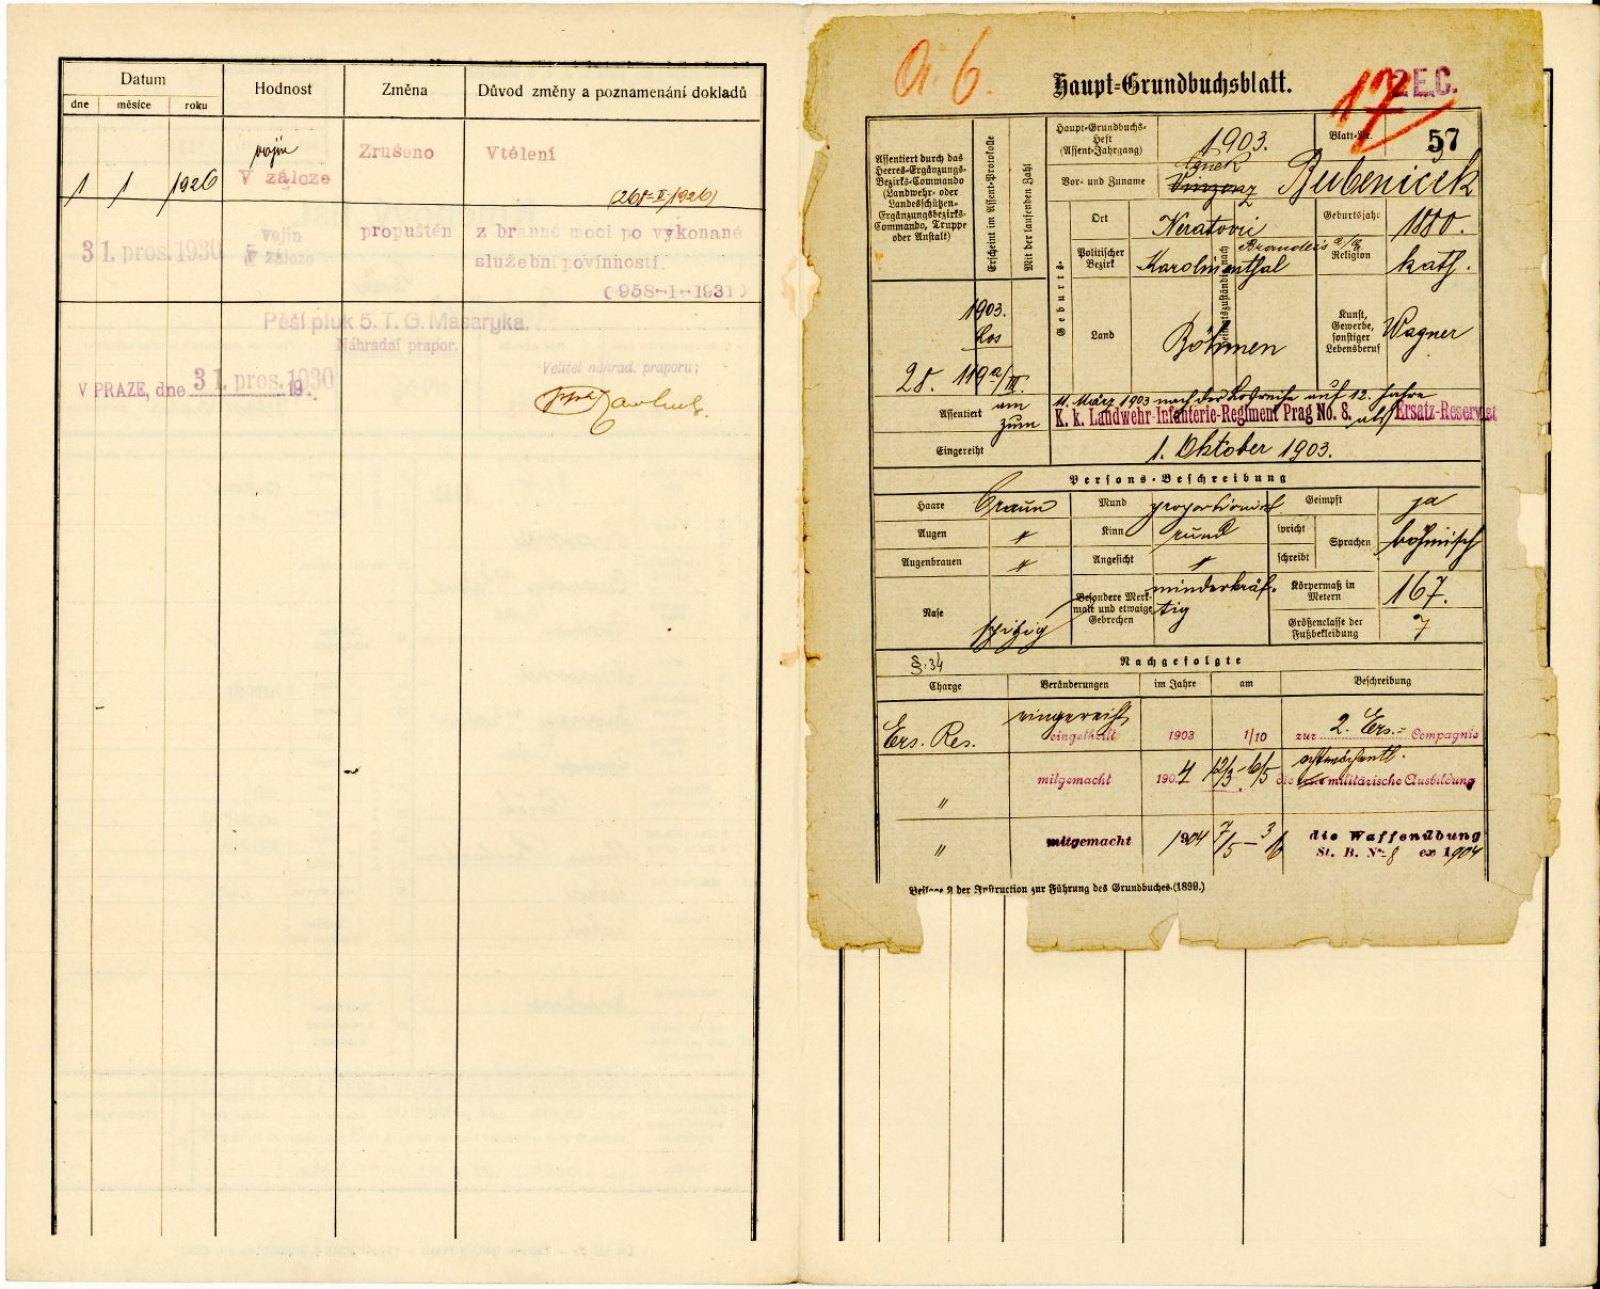 Datum
dne měsíce roku
Hodnost
Změna
Důvod změny a poznamenání dokladů
1 1 1926
vojín
V záloze
Zrušeno
Vtělení
(261-II/1926)
31. pros. 1930
vojín
V záloze
propuštěn
z branné moci po vykonané
služební povinnosti.
(958-1-1931)
Pěší pluk 5. T. G. Masaryka.
Náhradní prapor.
V PRAZE, dne 31. pros. 1930 19
Velitel náhrad. praporu;
a. 6.
Haupt-Grundbuchsblatt.
17
2E.C.
Assentiert durch das
Heeres-Ergänzungs-
Bezirks-Commando
(Landwehr- oder
Landesschützen-
Ergänzungsbezirks-
Commando, Truppe
oder Anstalt)
Erscheint im Assent-Protokolle
Mit der laufenden Zahl
Haupt-Grundbuchs-
Heft
(Assent-Jahrgang)
1903.
Blatt-Nr.
57
Vor- und Zuname
Vinzenz Bubeníček
Geburts-
Ort
Neratovic
Geburtsjahr
1880.
Politischer
Bezirk
Karolinenthal
Brandeis a/E.
Religion
kath.
Land
Böhmen
Kunst,
Gewerbe,
sonstiger
Lebensberuf
Wagner
1903.
Los
28. 119 a/III.
Assentiert
am
zum
11. März 1903 nach der Losreihe auf 12. Jahre
K. k. Landwehr-Infanterie-Regiment Prag No. 8. als Ersatz-Reservist
Eingereiht
1. Oktober 1903.
Persons-Beschreibung
Haare
braun
Mund
proportionirt
Geimpft
ja
Augen
"
Kinn
rund
spricht
schreibt
Sprachen
böhmisch
Augenbrauen
"
Angesicht
"
Nase
spitzig
Besondere Merk-
male und etwaige
Gebrechen
minderkräf-
tig
Körpermaß in
Metern
167.
Größenclasse der
Fußbekleidung
7
§. 34
Nachgefolgte
Charge
Veränderungen
im Jahre
am
Beschreibung
Ers. Res.
eingereiht
eingetheilt
1903
1/10
zur 2. Ers.- Compagnie
"
mitgemacht
1904
12/3 - 6/5
achtwöchentl.
die militärische Ausbildung
"
mitgemacht
1904
7/5 - 3/6
die Waffenübung
St. B. No 8 ex 1904
Beilage 2 der Instruction zur Führung des Grundbuches (1899.)